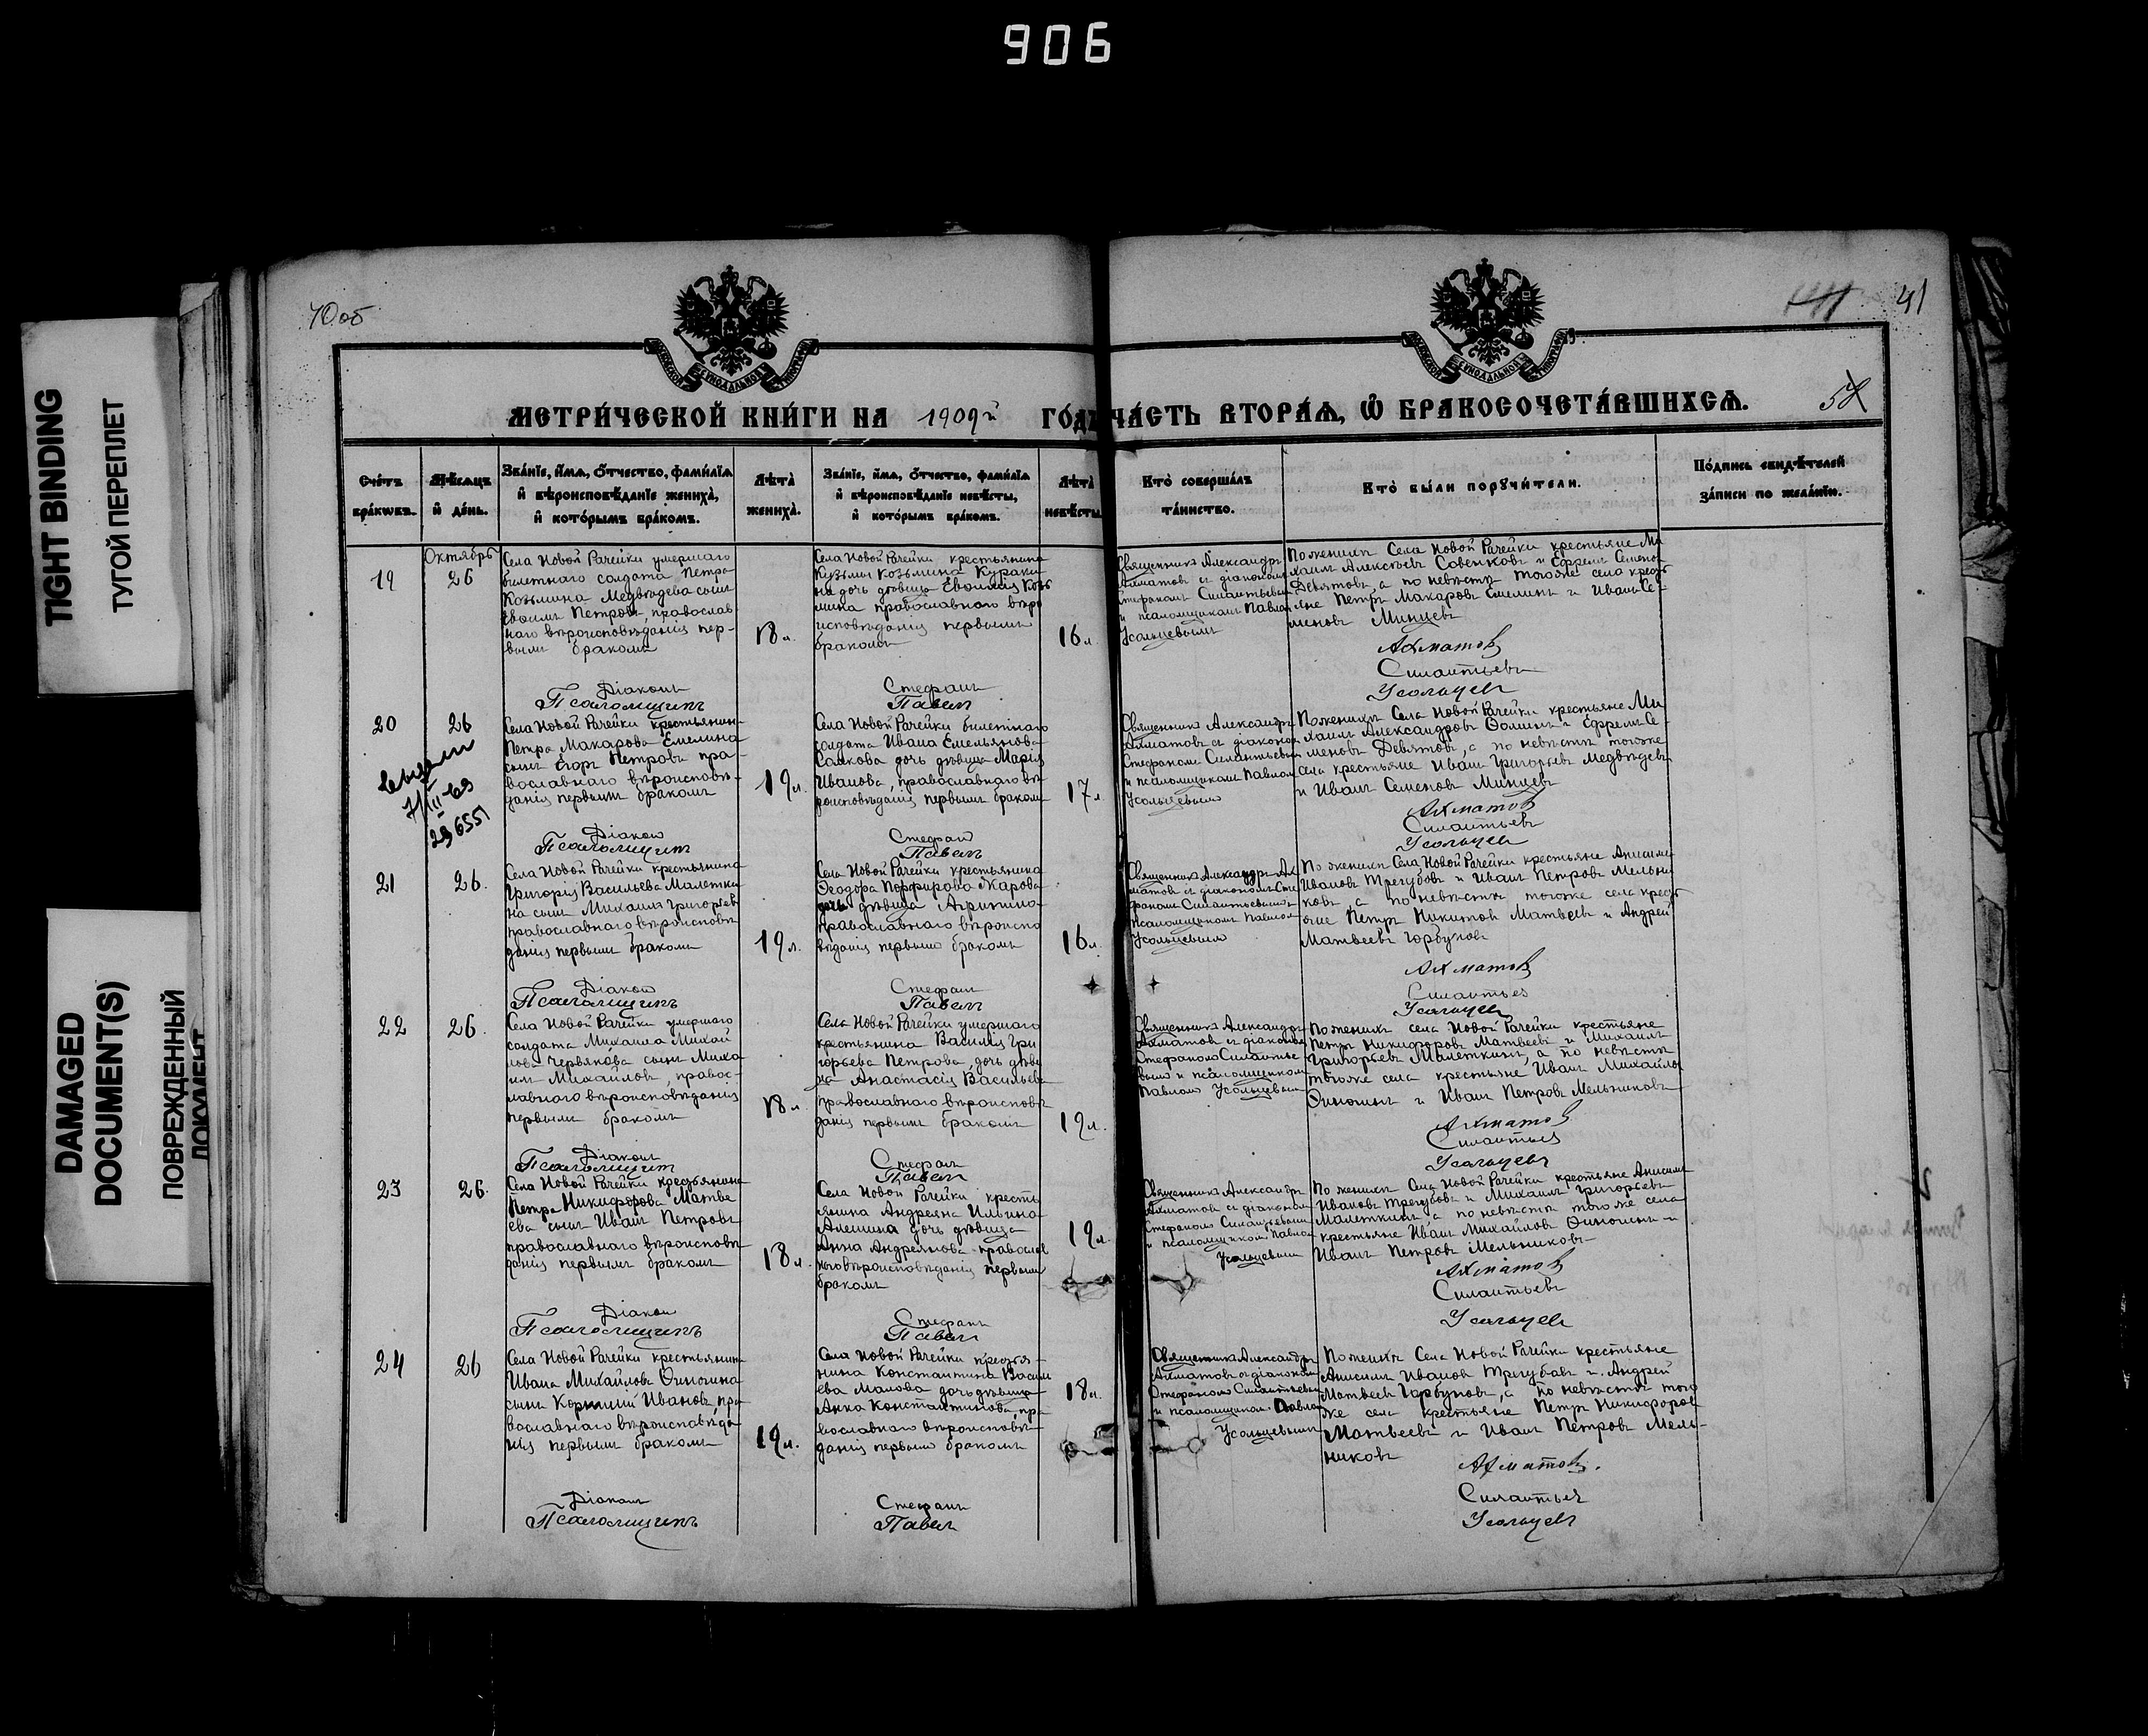 906
TIGHT BINDING
ТУГОЙ ПЕРЕПЛЕТ
DAMAGED
DOCUMENT(S)
ПОВРЕЖДЕННЫЙ
ДОКУМЕНТ
40об
41
МЕТРИ́ЧЕСКОЙ КНИ́ГИ НА 1909й ГО́ДЪ ЧА́СТЬ ВТОРА́Ѧ, Ѡ҆ БРАКОСОЧЕТА́ВШИХСѦ.
Сче́тъ
бра́кѡвъ.
Мѣ́сѧцъ
и҆ де́нь.
Зва́нїе, и҆́мѧ, ѻ҆́тчество, фами́лїѧ
и҆ вѣроисповѣ́данїе жениха̀,
и҆ кото́рымъ бра́комъ.
Лѣ́та̀
жениха̀.
Зва́нїе, и҆́мѧ, ѻ҆́тчество, фами́лїѧ
и҆ вѣроисповѣ́данїе невѣ́сты,
и҆ кото́рымъ бра́комъ.
Лѣ́та̀
невѣ́сты.
Кто̀ соверша́лъ
та́инство.
Кто̀ бы́ли порꙋчи́тели.
По́дпись свидѣ́телей
за́писи по жела́нїю.
19
Октябрь
26
Села Новой Рачейки умершаго
билетнаго солдата Петра
Козьмина Медвѣдева сынъ
Евѳимъ Петровъ, православ
наго вѣроисповѣданія пер-
вымъ бракомъ
18 л.
Села Новой Рачейки крестьянина
Кузьмы Козьмина Кураки
на дочь дѣвица Евѳимія Козь
мина православнаго вѣро
исповѣданія первымъ
бракомъ
16 л.
Священникъ Александръ
Ахматовъ съ діакономъ
Стефаномъ Силантьевымъ
и псаломщикомъ Павломъ
Усольцевымъ
По женихѣ Села Новой Рачейки крестьяне Ми
хаилъ Алексѣевъ Совенковъ и Ефремъ Семенов
Девятовъ, а по невѣстѣ тогоже села кресть
яне Петръ Макаровъ Емелинъ и Иванъ Се-
меновъ Минцевъ
Ахматовъ
Силантьевъ
Усольцевъ
Діаконъ
Псаломщикъ
Стефанъ
Павелъ
20
26
29655
Села Новой Рачейки крестьянина
Петра Макарова Емелина
сынъ Егоръ Петровъ пра-
вославнаго вѣроисповѣ-
данія первымъ бракомъ
19 л.
Села Новой Рачейки билетнаго
солдата Ивана Емельянова
Салкова дочь дѣвица Марія
Иванова, православнаго вѣ
роисповѣданія первымъ бракомъ
17 л.
Священникъ Александръ
Ахматовъ съ діакономъ
Стефаномъ Силантьевымъ
и псаломщикомъ Павломъ
Усольцевымъ
По женихѣ Села Новой Рачейки крестьяне Ми
хаилъ Александровъ Ѳоминъ и Ефремъ Се-
меновъ Девятовъ, а по невѣстѣ тогоже
села крестьяне Иванъ Григорьевъ Медвѣдевъ
и Иванъ Семеновъ Минцевъ
Ахматовъ
Силантьевъ
Усольцевъ
Діаконъ
Псаломщикъ
Стефанъ
Павелъ
21
26.
Села Новой Рачейки крестьянина
Григорія Васильева Малетки
на сынъ Михаилъ Григорьевъ
православнаго вѣроисповѣ
данія первымъ бракомъ
19 л.
Села Новой Рачейки крестьянина
Ѳеодора Порфирова Жарова
дочь дѣвица
православнаго вѣроиспо
вѣданія первымъ бракомъ
16 л.
Священникъ Александръ Ах
матовъ съ діакономъ Сте
фаномъ Силантьевымъ и
псаломщикомъ Павломъ
Усольцевымъ
По женихѣ Села Новой Рачейки крестьяне Анисимъ
Ивановъ Трегубовъ и Иванъ Петровъ Мельни
ковъ, а по невѣстѣ тогоже села кресть
яне Петръ Никитовъ Матвеевъ и Андрей
Матвеевъ Горбуновъ
Ахматовъ
Силантьев
Усольцевъ
Діаконъ
Псаломщикъ
Стефанъ
Павелъ
22
26.
Села Новой Рачейки умершаго
солдата Михаила Михай
лова Червякова сынъ Миха
илъ Михайловъ, правос-
лавнаго вѣроисповѣданія
первымъ бракомъ
18 л.
Села Новой Рачейки умершаго
крестьянина Василія Гри
горьева Петрова дочь дѣви
ца Анастасія Васильева
православнаго вѣроисповѣ
данія первымъ бракомъ
19 л.
Священникъ Александръ
Ахматовъ съ діакономъ
Стефаномъ Силантье
вымъ и псаломщикомъ
Павломъ Усольцевымъ
По женихѣ села Новой Рачейки крестьяне
Петръ Никифоровъ Матвеевъ и Михаилъ
Григорьевъ Малеткинъ, а по невѣстѣ
тогоже села крестьяне Иванъ Михайловъ
Финогинъ и Иванъ Петровъ Мельниковъ
Ахматовъ
Силантьев
Усольцевъ
Діаконъ
Псаломщикъ
Стефанъ
Павелъ
23
26.
Села Новой Рачейки крестьянина
Петра Никифорова Матве
ева сынъ Иванъ Петровъ
православнаго вѣроисповѣ
данія первымъ бракомъ
18 л.
Села Новой Рачейки кресть
янина Андреяна Ильина
Аленина дочь дѣвица
Анна Андреянова православ
наго вѣроисповѣданія первымъ
бракомъ
19 л.
Священникъ Александръ
Ахматовъ съ діакономъ
Стефаномъ Силантьевымъ
и псаломщикомъ Павломъ
Усольцевымъ
По женихѣ Села Новой Рачейки крестьяне Анисимъ
Ивановъ Трегубовъ и Михаилъ Григорьевъ
Малеткинъ, а по невѣстѣ того же села
крестьяне Иванъ Михайловъ Финогинъ и
Иванъ Петровъ Мельниковъ
Ахматовъ
Силантьевъ
Усольцевъ
Діаконъ
Псаломщикъ
Стефанъ
Павелъ
24
26
Села Новой Рачейки крестьянина
Ивана Михайлова Финогина
сынъ Корнилій Ивановъ, пра
вославнаго вѣроисповѣда
нія первымъ бракомъ
19 л.
Села Новой Рачейки крестья-
нина Константина Василь
ева Малова дочь дѣвица
Анна Константинова, пра
вославнаго вѣроисповѣ
данія первымъ бракомъ
18 л.
Священникъ Александръ
Ахматовъ съ діакономъ
Стефаномъ Силантьевымъ
и псаломщикомъ Павломъ
Усольцевымъ
По женихѣ Села Новой Рачейки крестьяне
Анисимъ Ивановъ Трегубовъ и Андрей
Матвеевъ Горбуновъ, а по невѣстѣ того
же села крестьяне Петръ Никифоров
Матвеевъ и Иванъ Петровъ Мель-
никовъ
Ахматовъ.
Силантьев
Усольцевъ
Діаконъ
Псаломщикъ
Стефанъ
Павелъ